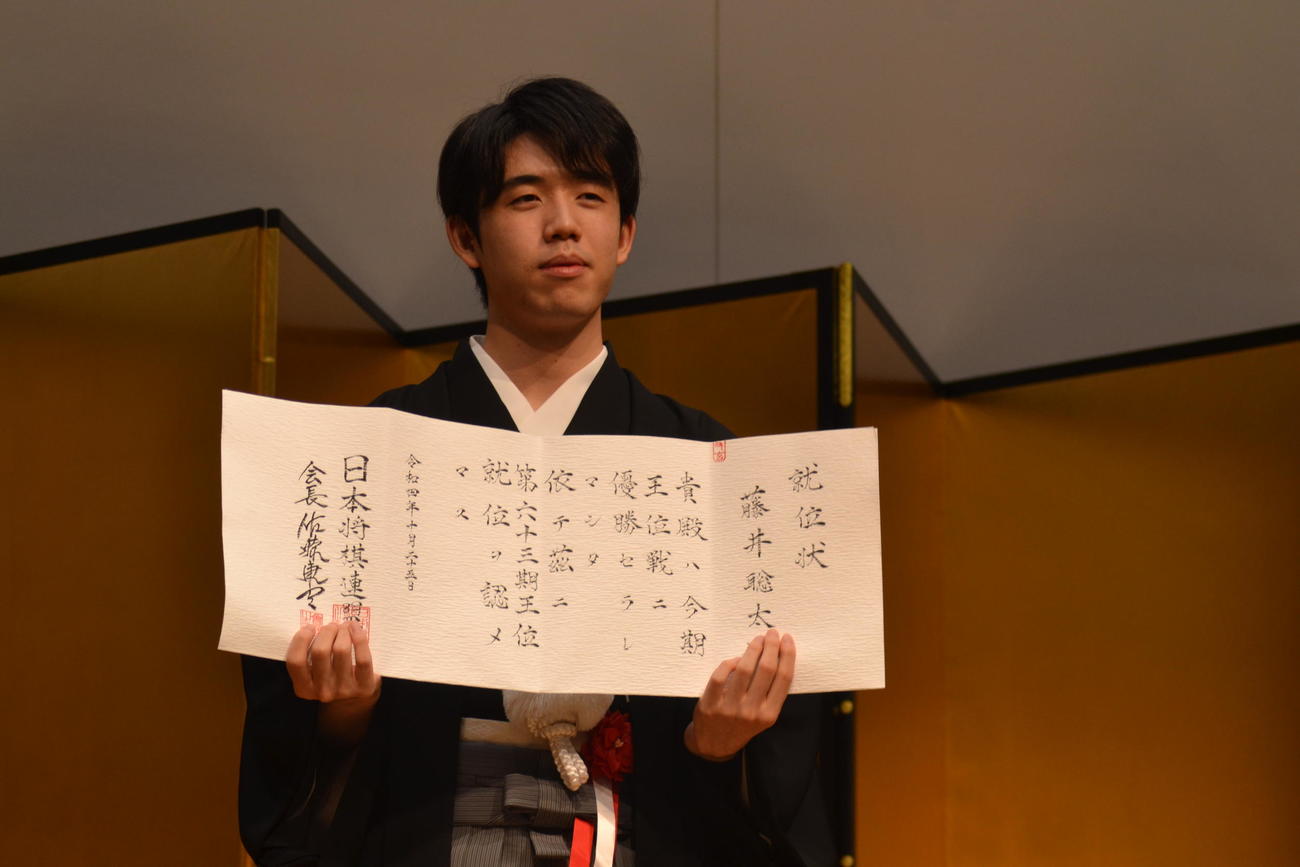 就位状
藤井聡太
貴殿ハ今期
王位戦ニ
優勝セラレ
マシタ
依テ茲ニ
第六十三期王位
就位ヲ認メ
マス
令和四年十月二十五日
日本将棋連盟
会長佐藤康光